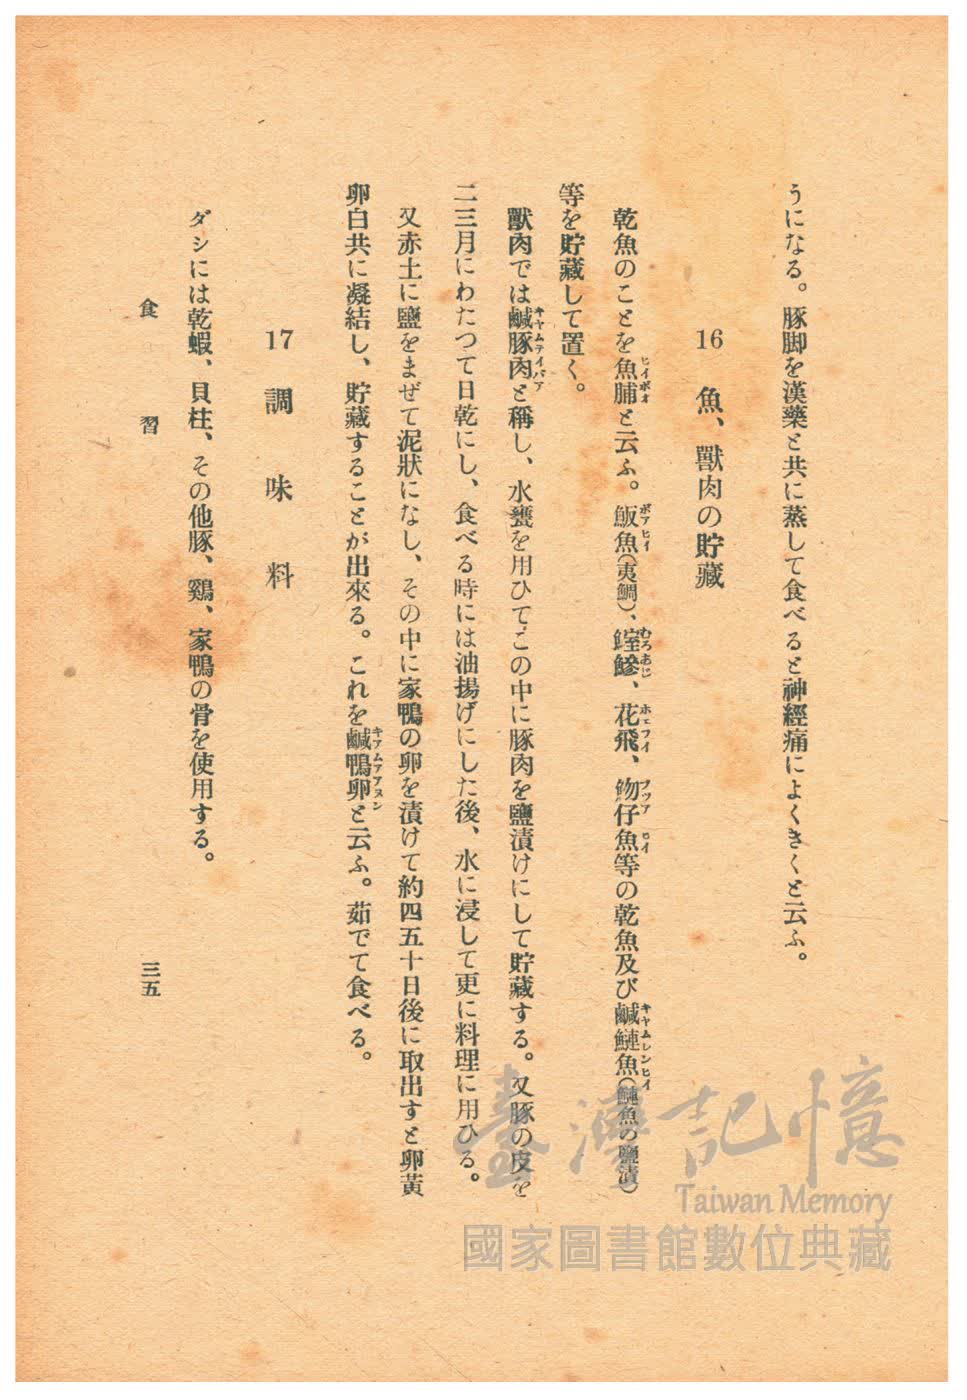 うになる。豚脚を漢藥と共に蒸して食べると神經痛によくきくと云ふ。
16 魚、獸肉の貯藏
乾魚のことを魚脯と云ふ。魬魚(夷鯛)、鰘鰺、花飛、魩仔魚等の乾魚及び鹹鰱魚(鰱魚の鹽漬)
ヒイボオ
ボアヒイ
むろあじ
ホエフイ
フツア ヒイ
キヤムレンヒイ
等を貯藏して置く。
獸肉では鹹豚肉と稱し、水甕を用ひてこの中に豚肉を鹽漬けにして貯藏する。又豚の皮を
キヤムテイバア
二三月にわたつて日乾にし、食べる時には油揚げにした後、水に浸して更に料理に用ひる。
又赤土に鹽をまぜて泥狀になし、その中に家鴨の卵を漬けて約四五十日後に取出すと卵黄
卵白共に凝結し、貯藏することが出來る。これを鹹鴨卵と云ふ。茹でて食べる。
キアムアアヌン
17 調味料
ダシには乾蝦、貝柱、その他豚、鷄、家鴨の骨を使用する。
食習
三五
臺灣記憶
Taiwan Memory
國家圖書館數位典藏